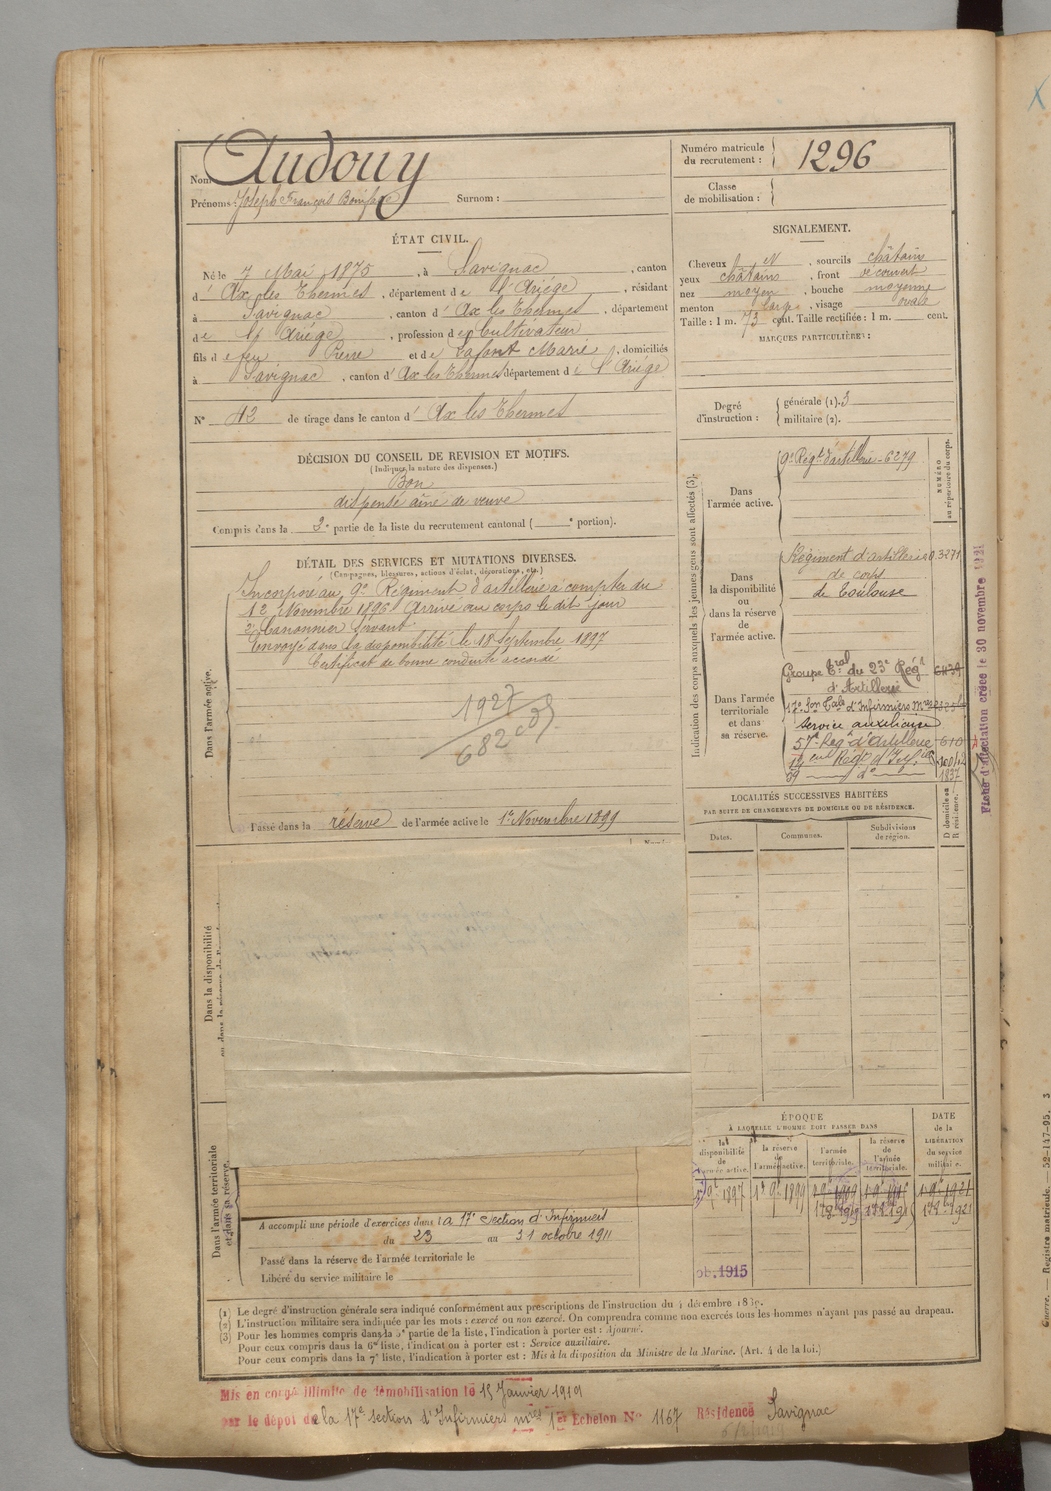 Nom Audouy
Prénoms : Joseph François Surnom :
Numéro matricule du recrutement : 1296
Classe de mobilisation :
ÉTAT CIVIL.
Né le 7 Mai 1875, à Savignac, canton
d' Ax les Thermes, département de l'Ariège, résidant
à Savignac, canton d' Ax les Thermes, département
de l'Ariège, profession de Cultivateur
fils de feu Pierre et de Lafont Marie, domiciliés
à Savignac, canton d' Ax les Thermes département de l'Ariège
N° 42 de tirage dans le canton d' Ax les Thermes
SIGNALEMENT.
Cheveux N, sourcils châtain
yeux châtains, front découvert
nez moyen, bouche moyenne
menton large, visage ovale
Taille : 1 m. 73 cent. Taille rectifiée : 1 m. cent.
MARQUES PARTICULIÈRES :
Degré d'instruction : générale (1). 3
militaire (2).
DÉCISION DU CONSEIL DE REVISION ET MOTIFS.
(Indiquer la nature des dispenses.)
Bon
dispensé aîné de veuve
Compris dans la 2e partie de la liste du recrutement cantonal ( e portion).
DÉTAIL DES SERVICES ET MUTATIONS DIVERSES.
(Campagnes, blessures, actions d'éclat, décorations, etc.)
Dans l'armée active.
Incorporé au 9e Régiment d'artillerie à compter du
12 Novembre 1896. Arrivé au corps le dit jour
2e Canonnier Servant
Envoyé dans la disponibilité le 18 Septembre 1897
Certificat de bonne conduite accordé
1927
682
Passé dans la réserve de l'armée active le 1er Novembre 1899
Indication des corps auxquels les jeunes gens sont affectés (3).
NUMÉRO au répertoire du corps.
Dans l'armée active.
9e Régt d'artillerie - 6279
Dans la disponibilité ou dans la réserve de l'armée active.
Régiment d'artillerie 3271
de corps
de Toulouse
Dans l'armée territoriale et dans sa réserve.
Groupe Tral du 23e Régt
d'Artillerie
17e Son Tale d'Infirmiers Mres
Service auxiliaire
57e Régt d'Artillerie 610
Régt d'Infie
59 do 1837
Fiche d'affectation créée le 30 novembre 1921
LOCALITÉS SUCCESSIVES HABITÉES
PAR SUITE DE CHANGEMENTS DE DOMICILE OU DE RÉSIDENCE.
Dates. Communes. Subdivisions de région. D domicile ou R résidence.
Dans la disponibilité
Dans l'armée territoriale et dans sa réserve.
ÉPOQUE
À LAQUELLE L'HOMME DOIT PASSER DANS
la disponibilité de l'armée active.
la réserve de l'armée active.
l'armée territoriale.
la réserve de l'armée territoriale.
DATE de la LIBÉRATION du service militaire.
1897 1er 9e 1899
ob. 1915
A accompli une période d'exercices dans la 17e Section d'Infirmiers
du 23 au 31 octobre 1911
Passé dans la réserve de l'armée territoriale le
Libéré du service militaire le
(1) Le degré d'instruction générale sera indiqué conformément aux prescriptions de l'instruction du 4 décembre 1889.
(2) L'instruction militaire sera indiquée par les mots : exercé ou non exercé. On comprendra comme non exercés tous les hommes n'ayant pas passé au drapeau.
(3) Pour les hommes compris dans la 5e partie de la liste, l'indication à porter est : Ajourné.
Pour ceux compris dans la 6e liste, l'indication à porter est : Service auxiliaire.
Pour ceux compris dans la 7e liste, l'indication à porter est : Mis à la disposition du Ministre de la Marine. (Art. 4 de la loi.)
Mis en congé illimité de démobilisation le 15 Janvier 1919
par le dépôt de la 17e section d'Infirmiers mres 1er Echelon No 1167 Résidence Savignac
Guerre. — Registre matricule. — 52-147-95. 3